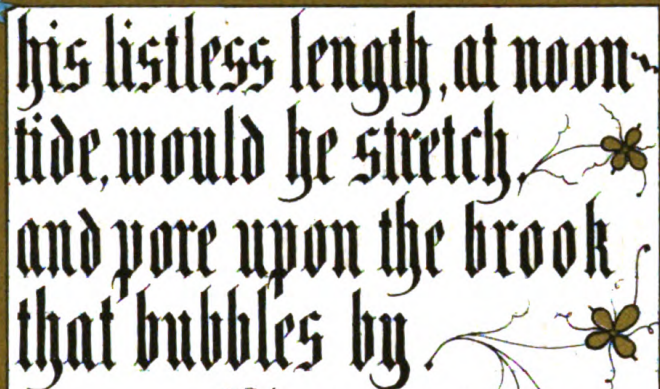 his listless length, at noon-
tide, would he stretch,
and pore upon the brook
that bubbles by.